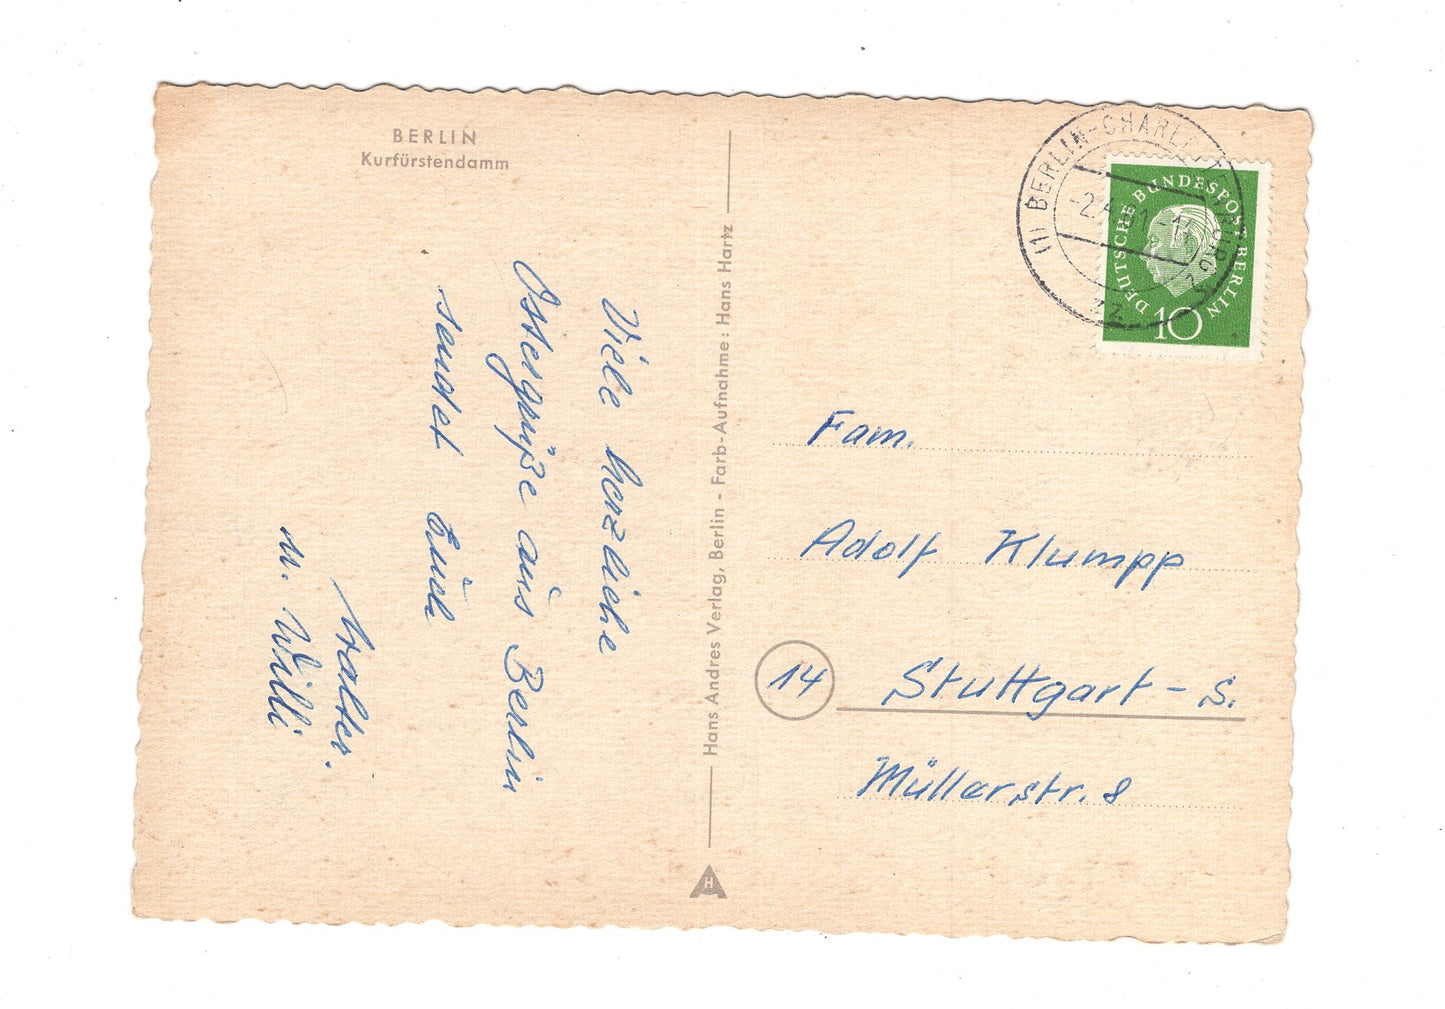 BERLIN
Kurfürstendamm
Viele herzliche
Ostergrüße aus Berlin
sendet Euch
Walter.
u. Willi
Hans Andres Verlag, Berlin - Farb-Aufnahme: Hans Hartz
H
(1) BERLIN-CHARLOTTENBURG 2
-2.4.61-1
zz
DEUTSCHE BUNDESPOST BERLIN
10
Fam.
Adolf Klumpp
14 Stuttgart-S.
Müllerstr. 8